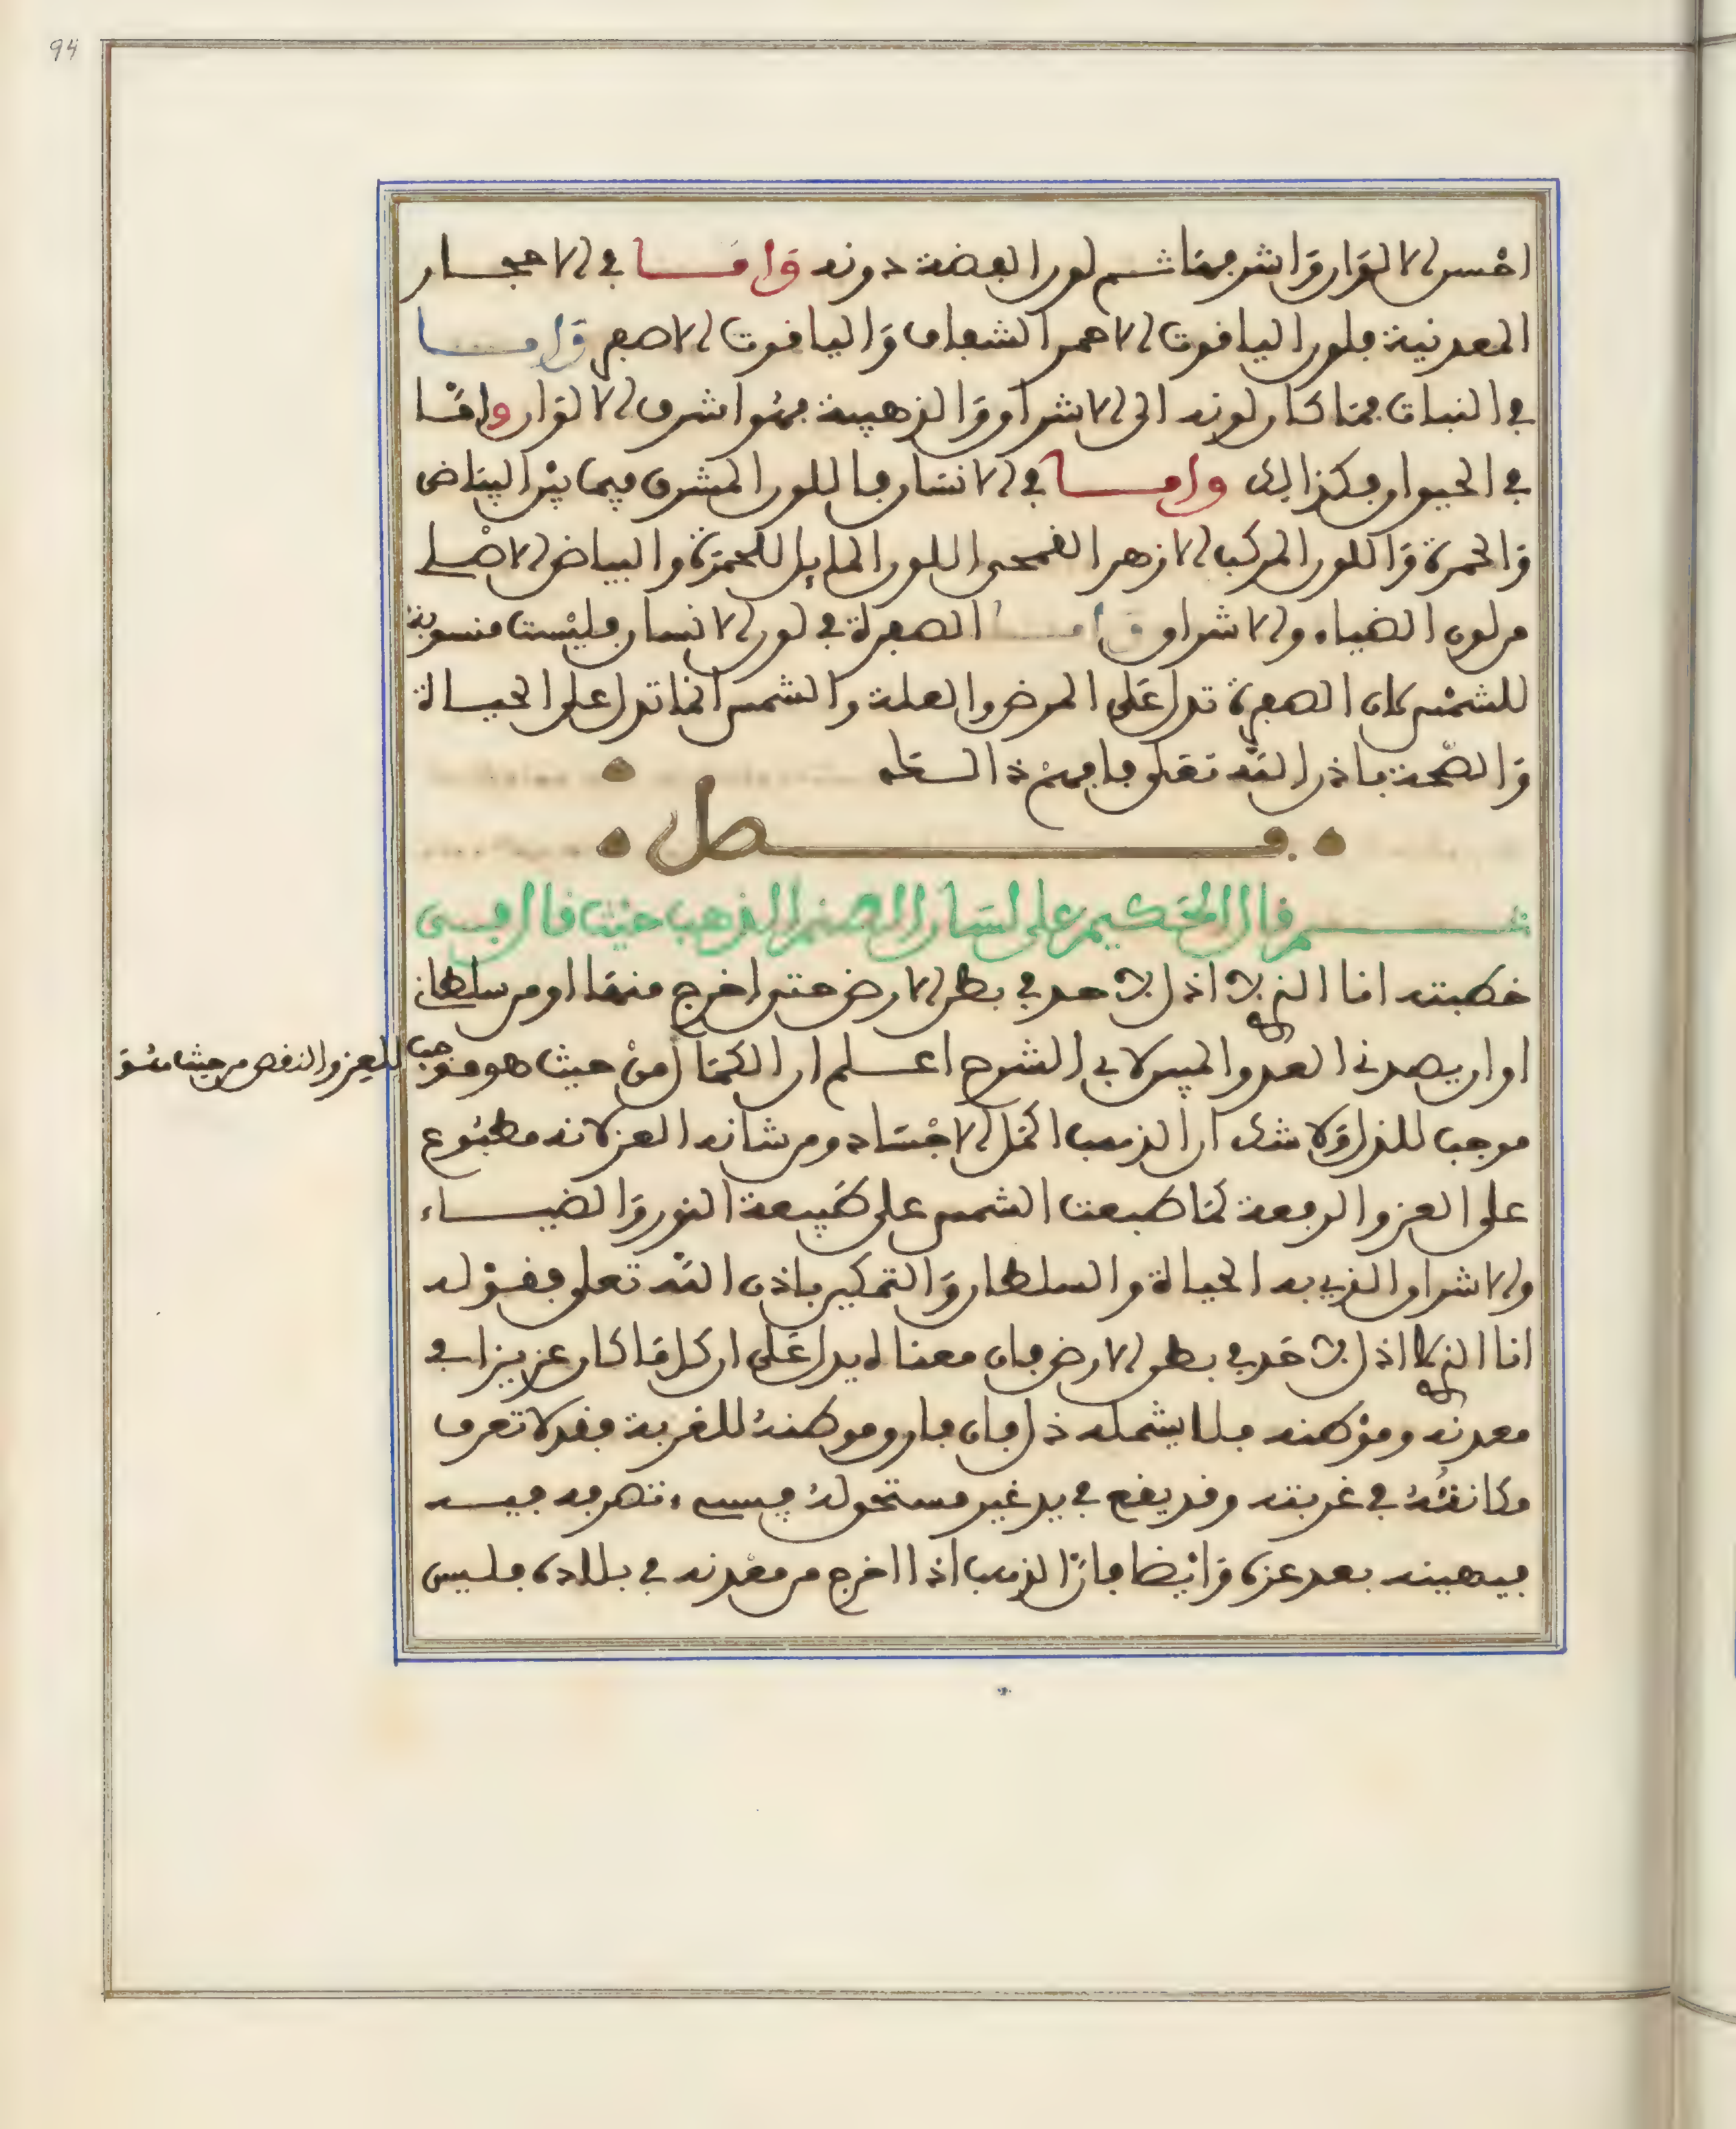 احسن الالوان واشرفها ثم لون الفضة دونه واما في الاحجار
المعدنية فلون الياقوت الاحمر الشفاف والياقوت الاصفر واما
في النبات فما كان لونه الى الاشراق والذهبية فهو اشرف الالوان واما
في الحيوان فكذالك واما في الانسان فاللون المشرق فيما بين البياض
والحمرة واللون المركب الازهر القمحي اللون المايل للحمرة والبياض الاصلي
من لون الضياء والاشراق واما الصفرة في لون الانسان فليست منسوبة
للشمس لان الصفرة تدل على المرض والعلة والشمس انما تدل على الحياة
والصحة باذن الله تعلى فافهم ذالك
فصل
ثم قال الحكيم على لسان الصنم الذهب حيث قال في
خطبته انا الذي لا اذل لاحد في بطن الارض حتى اخرج منها او من سلطاني
او ان يصدني العدو الميولاني الشرح اعلم ان الكمال من حيث هو موجب
للعز والنقص من حيث هو
موجب للذل ولا شك ان الذهب اكمل الاجساد ومن شانه العز لانه مطبوع
على العز والرفعة كما طبعت الشمس على طبيعة النور والضياء
والاشراق الذي به الحياة والسلطان والتمكين باذن الله تعلى فقوله
انا الذي لا اذل لاحد في بطن الارض فان معناه يدل على ان كل ما كان عزيزا في
معدنه وموطنه فلا يشمله ذل فان فارق موطنه للغربة فقد لا تعرف
مكانته في غربته وقد يقع في يد غير مستحق له فيسيء تصرفه فيه
فيهينه بعد عزه وايضا فان الذهب اذا اخرج من معدنه في بلاده فليس